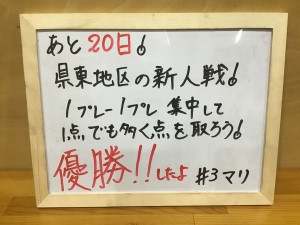 あと20日!
県東地区の新人戦!
1プレー1プレ 集中して
1点でも多く点を取ろう!
優勝!!したよ #3マリ